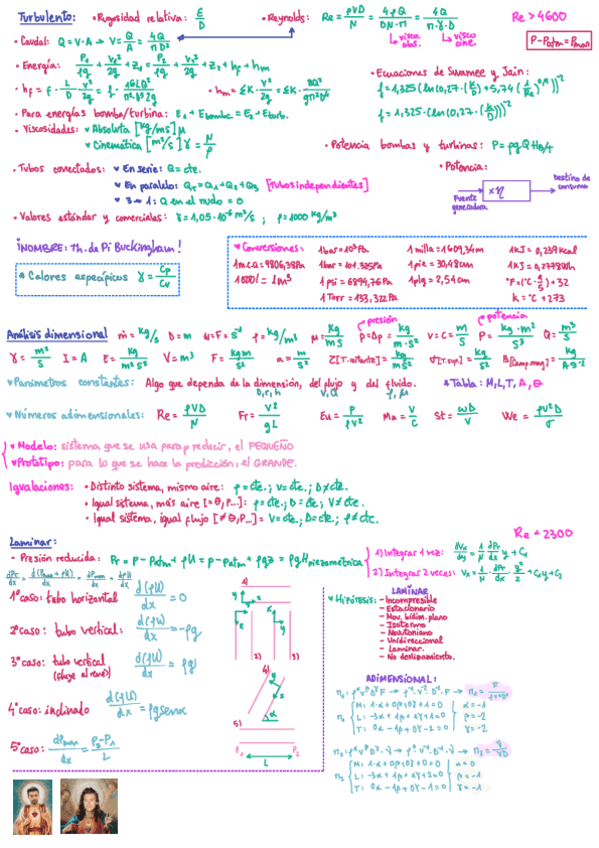 Turbulento: • Rugosidad relativa: ε/D • Reynolds: Re = ρVD/N = 4ρQ/DNπ = 4Q/π·γ·D Re > 4600
↳ visco. abs. ↳ visco. cine.
P - Patm = Pman
• Caudal: Q = V·A → V = Q/A = 4Q/πD²
• Energía: P₁/ρg + V₁²/2g + z₁ = P₂/ρg + V₂²/2g + z₂ + hf + hm
• hf = f · L/D · V²/2g = f · 16LQ²/π²D⁵2g • hm = ΣK · V²/2g = ΣK · 8Q²/gπ²D⁴
• Ecuaciones de Swamee y Jain:
• Para energías bomba/turbina: E₁ + Ebomba = E₂ + Eturb.
• Viscosidades: ♥ Absoluta [kg/ms] μ
♥ Cinemática [m²/s] γ = N/ρ
• Potencia bombas y turbinas: P = ρgQH
• Tubos conectados: ♥ En serie: Q = cte.
♥ En paralelo: QT = Q₁ + Q₂ + Q₃ [Tubos independientes]
♥ 3 → 1: Q en el nudo = 0
• Potencia:
Fuente generadora ×η destino de consumo
• Valores estándar y comerciales: γ = 1,05·10⁻⁶ m²/s ; ρ = 1000 kg/m³
¡NOMBRE: Th. de Pi Buckingham!
* Calores específicos γ = Cp/Cv
♥ Conversiones: 1bar = 10⁵Pa 1 milla = 1609,34m 1KJ = 0,239kcal
1mca = 9806,38Pa 1bar = 101.325Pa 1 pie = 30,48cm 1KJ = 0,2778Wh
1000l = 1m³ 1 psi = 6894,76Pa 1plg = 2,54cm °F = (°C·9/5) + 32
1 Torr = 133,322Pa K = °C + 273
Análisis dimensional ṁ = kg/s D = m ω = F = s⁻¹ ρ = kg/m³ μ = kg/m·s presión p = Δp = kg/m·s² v = c = m/s potencia P = kg·m²/s³ Q = m³/s
γ = m²/s I = A E = kg/m²s² V = m³ F = kgm/s² a = m/s² σ[T. sup.] = kg/s² B[Camp. mag] = kg/A·s⁻²
♥ Parámetros constantes: Algo que dependa de la dimensión, del flujo y del fluido. * Tabla: M, L, T, A, Θ
♥ Números adimensionales: Re = ρVD/N Fr = V²/gL Eu = P/ρV² Ma = V/c St = ωD/V We = ρV²D/σ
♥ Modelo: sistema que se usa para predecir, el PEQUEÑO
♥ Prototipo: para lo que se hace la predicción, el GRANDE.
Igualaciones: • Distinto sistema, mismo aire: ρ = cte.; v = cte.; D ≠ cte.
• Igual sistema, más aire [=Θ, P...]: ρ = cte.; D = cte.; V ≠ cte.
• Igual sistema, igual flujo [≠Θ, P...] = V = cte.; D = cte.; ρ ≠ cte.
Laminar: Re < 2300
• Presión reducida: Pr = P - Patm + ρU = P - Patm + ρgz = ρgHpiezométrica
1) Integrar 1 vez: dVx/dy = 1/N dPr/dx y + C₁
2) Integrar 2 veces: Vx = 1/N · dPr/dx · y²/2 + C₁y + C₂
1º caso: tubo horizontal d(ρU)/dx = 0
2º caso: tubo vertical: d(ρU)/dx = -ρg
3º caso: tubo vertical (fluye al revés) d(ρU)/dx = ρg
4º caso: inclinado d(ρU)/dx = ρg senα
5º caso: dPman/dx = P₂-P₁/L
1)
2) 3)
4)
α
5)
P₁ P₂
L
LAMINAR
♥ Hipótesis: - Incompresible
- Estacionario
- Mov. bidim. plano
- Isotermo
- Newtoniano
- Unidireccional
- Laminar.
- No deslizamiento.
ADIMENSIONAL: